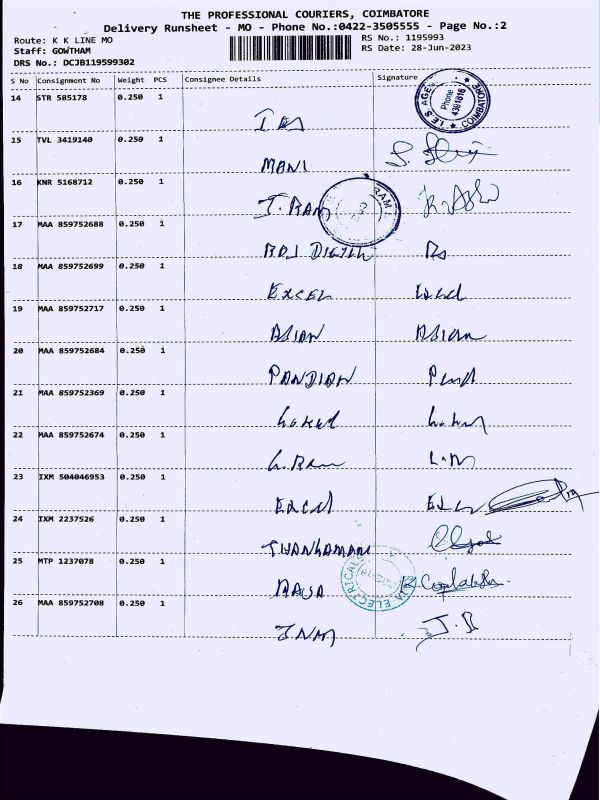 THE PROFESSIONAL COURIERS, COIMBATORE
Delivery Runsheet - MO - Phone No.:0422-3505555 - Page No.:2
Route: K K LINE MO
RS No.: 1195993
Staff: GOWTHAM
RS Date: 28-Jun-2023
DRS No.: DCJB119599302
S No Consignment No Weight PCS Consignee Details Signature
14 STR 585178 0.250 1
I.E.S AGEN
Phone
4391816
COIMBATORE
15 TVL 3419140 0.250 1
MANI
16 KNR 5168712 0.250 1
J. RAM
17 MAA 859752688 0.250 1
18 MAA 859752699 0.250 1
EXCEL
19 MAA 859752717 0.250 1
ASIAN ASIAN
20 MAA 859752684 0.250 1
PANDIAN
21 MAA 859752369 0.250 1
22 MAA 859752674 0.250 1
23 IXM 504046953 0.250 1
EXCEL
24 IXM 2237526 0.250 1
THANGAMANI
25 MTP 1237078 0.250 1
RAJA ELECTRICALS
RAJA
26 MAA 859752708 0.250 1
JNM J.B